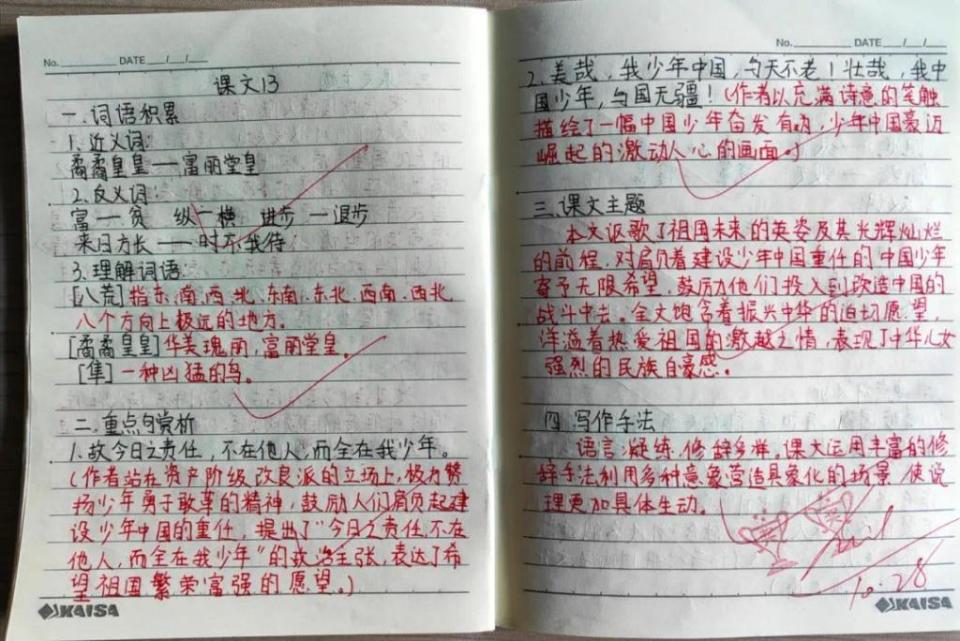 No. DATE / /
课文13
一.词语积累
1.近义词:
矞矞皇皇——富丽堂皇
2.反义词:
富—贫 纵—横 进步—退步
来日方长——时不我待
3.理解词语
[八荒]指东、南、西、北、东南、东北、西南、西北
八个方向上极远的地方。
[矞矞皇皇]华美瑰丽,富丽堂皇。
[隼]一种凶猛的鸟。
二.重点句赏析
1.故今日之责任,不在他人,而全在我少年。
(作者站在资产阶级改良派的立场上,极力赞
扬少年勇于敢革的精神,鼓励人们肩负起建
设少年中国的重任,提出了“今日之责任,不在
他人,而全在我少年”的政治主张,表达了希
望祖国繁荣富强的愿望。)
KAISA
No. DATE / /
2.美哉,我少年中国,与天不老!壮哉,我中
国少年,与国无疆!(作者以充满诗意的笔触
描绘了一幅中国少年奋发有为,少年中国豪迈
崛起的激动人心的画面。)
三.课文主题
本文讴歌了祖国未来的英姿及其光辉灿烂
的前程,对肩负着建设少年中国重任的中国少年
寄予无限希望,鼓励他们投入到改造中国的
战斗中去。全文饱含着振兴中华的迫切愿望,
洋溢着热爱祖国的激越之情,表现了中华儿女
强烈的民族自豪感。
四.写作手法
语言凝练,修辞多样。课文运用丰富的修
辞手法利用多种意象营造具象化的场景,使说
理更加具体生动。
10.28
KAISA